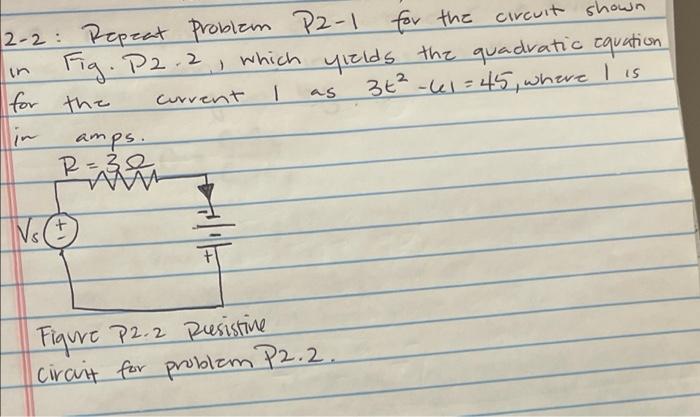 2-2: Repeat Problem P2-1 for the circuit shown
in Fig. P2.2, which yields the quadratic equation
for the current I as 3t² - 61 = 45, where I is
in amps.
R = 3Ω
Vs
+
-
-
+
Figure P2.2 Resistive
circuit for problem P2.2.